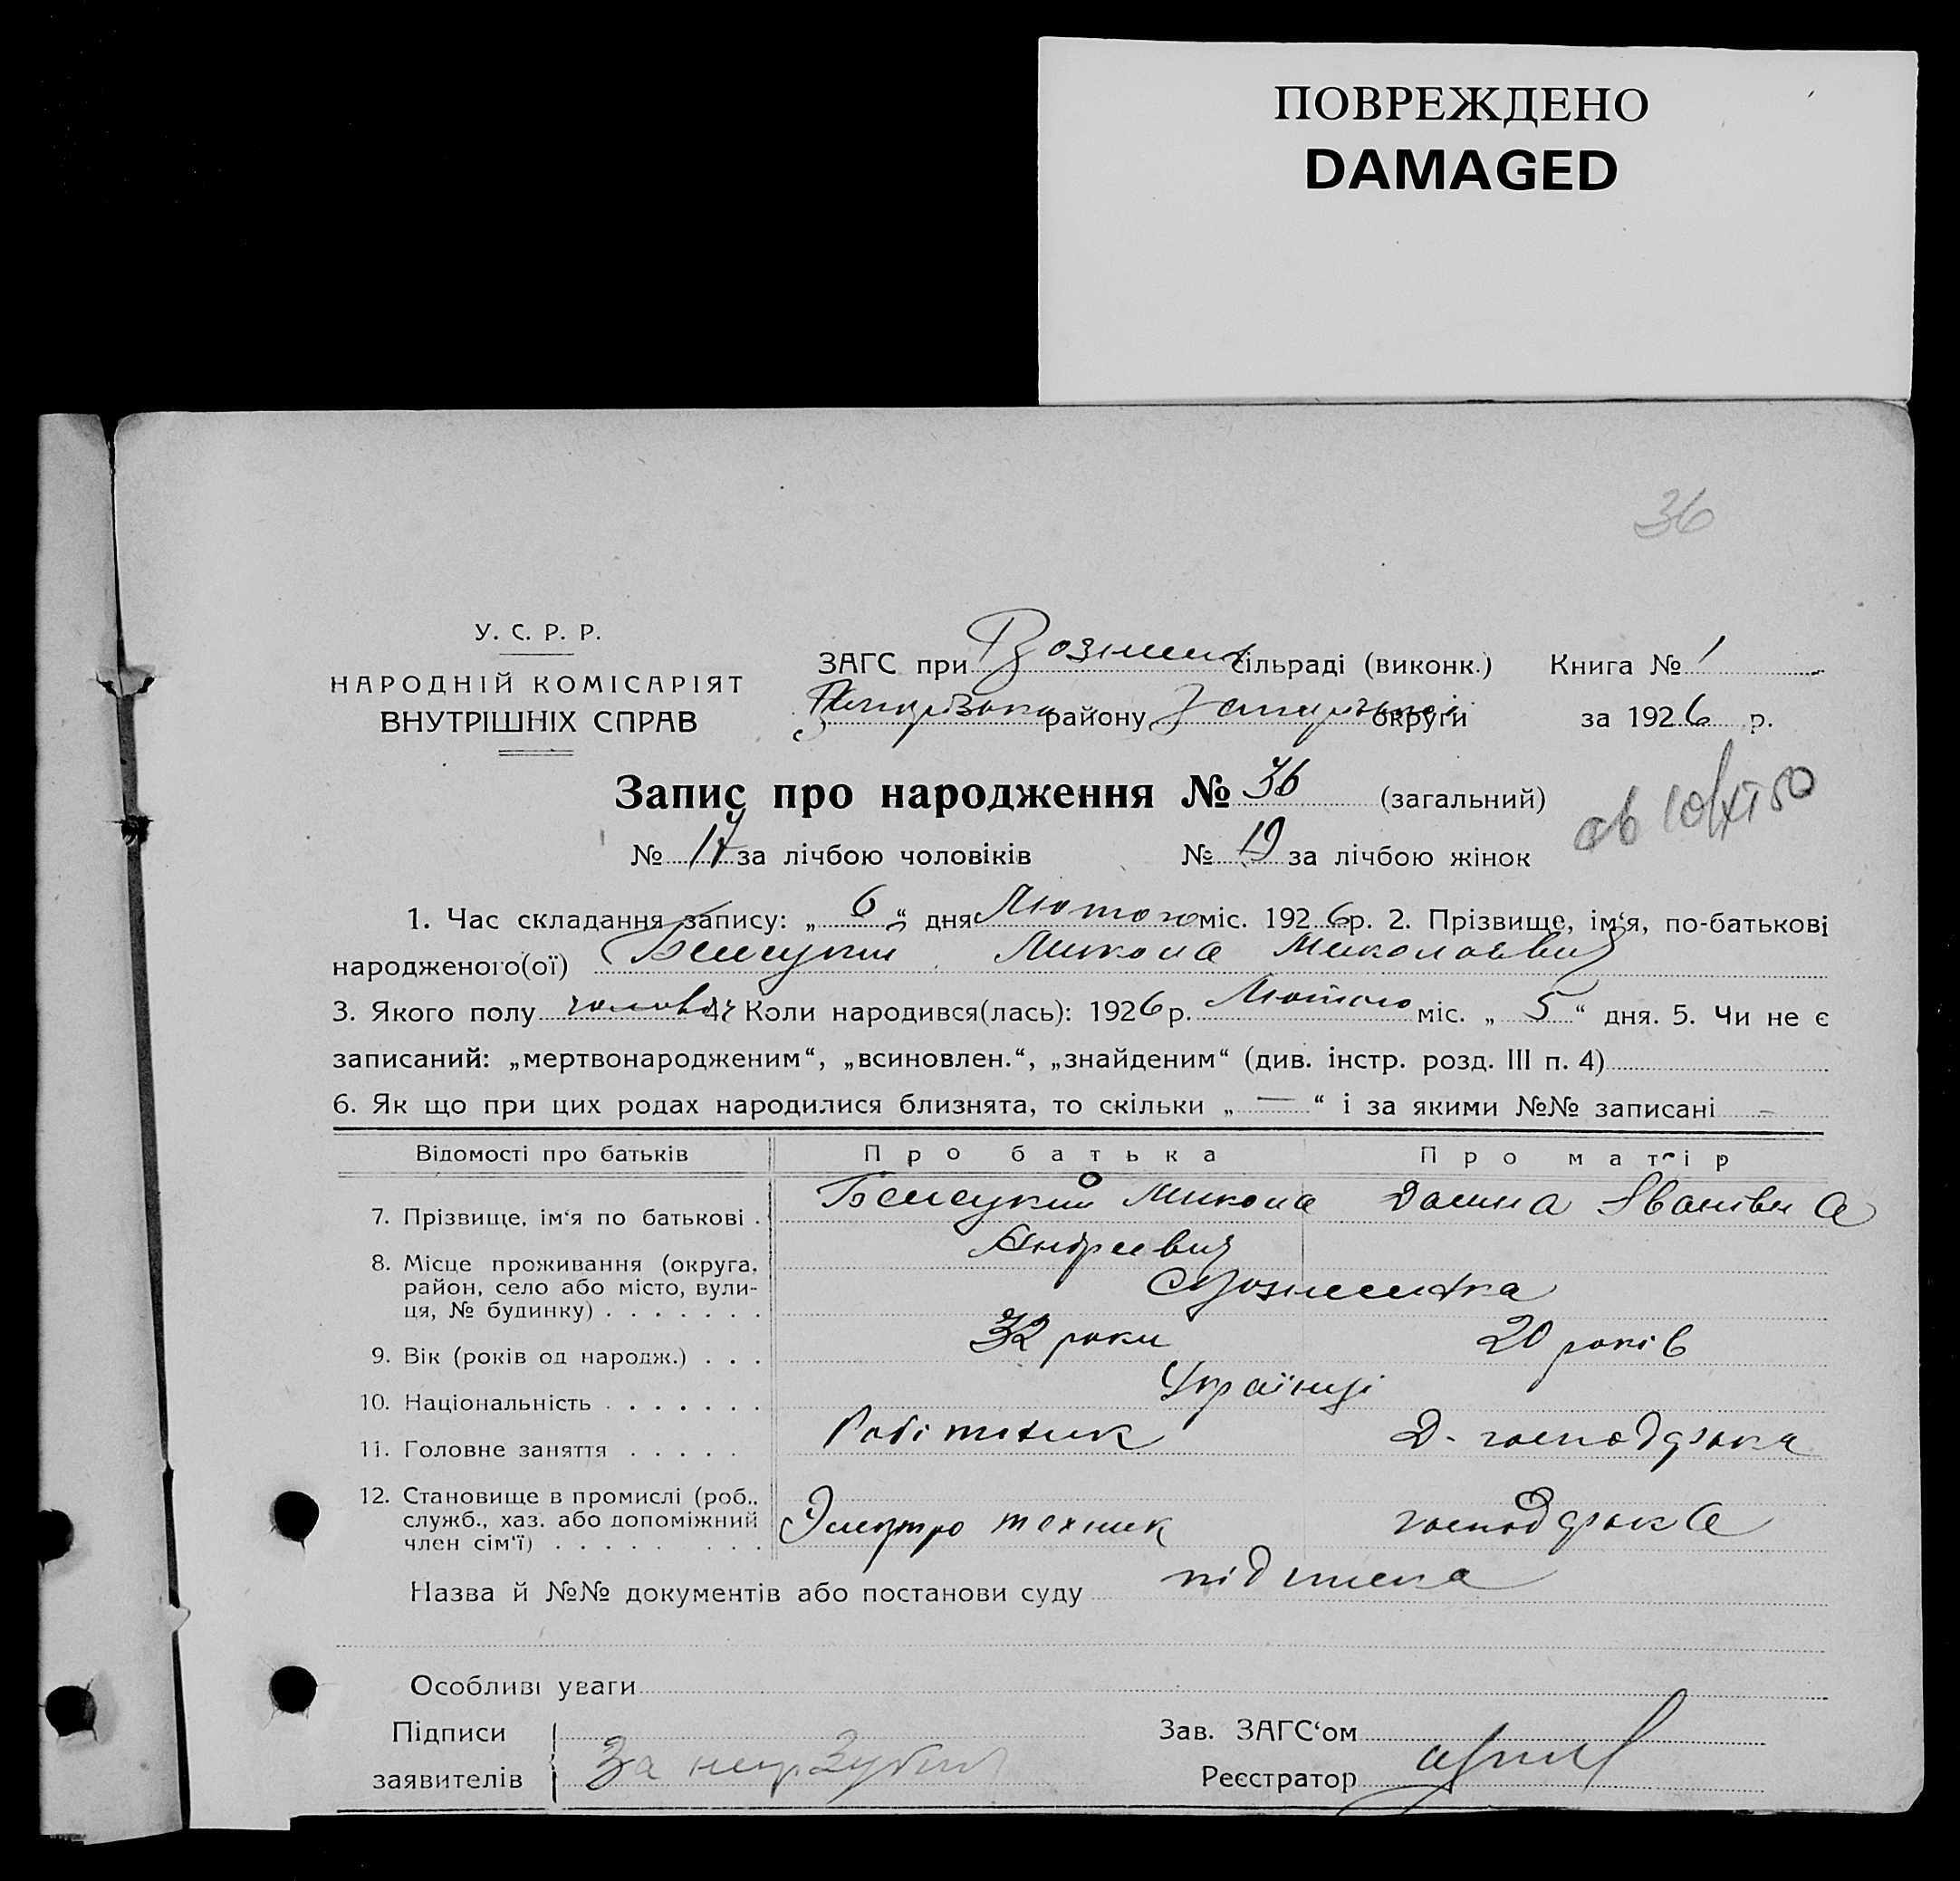 ПОВРЕЖДЕНО
DAMAGED
36
У. С. Р. Р.
НАРОДНІЙ КОМІСАРІЯТ
ВНУТРІШНІХ СПРАВ
ЗАГС при сільраді (виконк.) Книга № 1
району округи за 1926 р.
Запис про народження № 36 (загальний)
№ 17 за лічбою чоловіків № 19 за лічбою жінок
1. Час складання запису: „ 6 “ дня Лютого міс. 1926 р. 2. Прізвище, ім‘я, по-батькові
народженого(ої) Микола Миколаевич
3. Якого полу 4. Коли народився(лась): 1926 р. Лютого міс. „ 5 “ дня. 5. Чи не є
записаний: „мертвонародженим“, „всиновлен.“, „знайденим“ (див. інстр. розд. III п. 4)
6. Як що при цих родах народилися близнята, то скільки „ — “ і за якими №№ записані –
Відомості про батьків Про батька Про матір
7. Прізвище, ім‘я по батькові . Микола Іванівна
Андреевич
8. Місце проживання (округа,
район, село або місто, вули-
ця, № будинку) . . . . . . .
9. Вік (років од народж.) . . . 32 роки 20 років
10. Національність . . . . . . . Українці
11. Головне заняття . . . . . Робітник Д. господарка
12. Становище в промислі (роб.,
служб., хаз. або допоміжний
член сім‘ї) . . . . . . . . Электро техник господарка
Назва й №№ документів або постанови суду підписка
Особливі уваги
Підписи Зав. ЗАГС‘ом
заявителів За Реєстратор